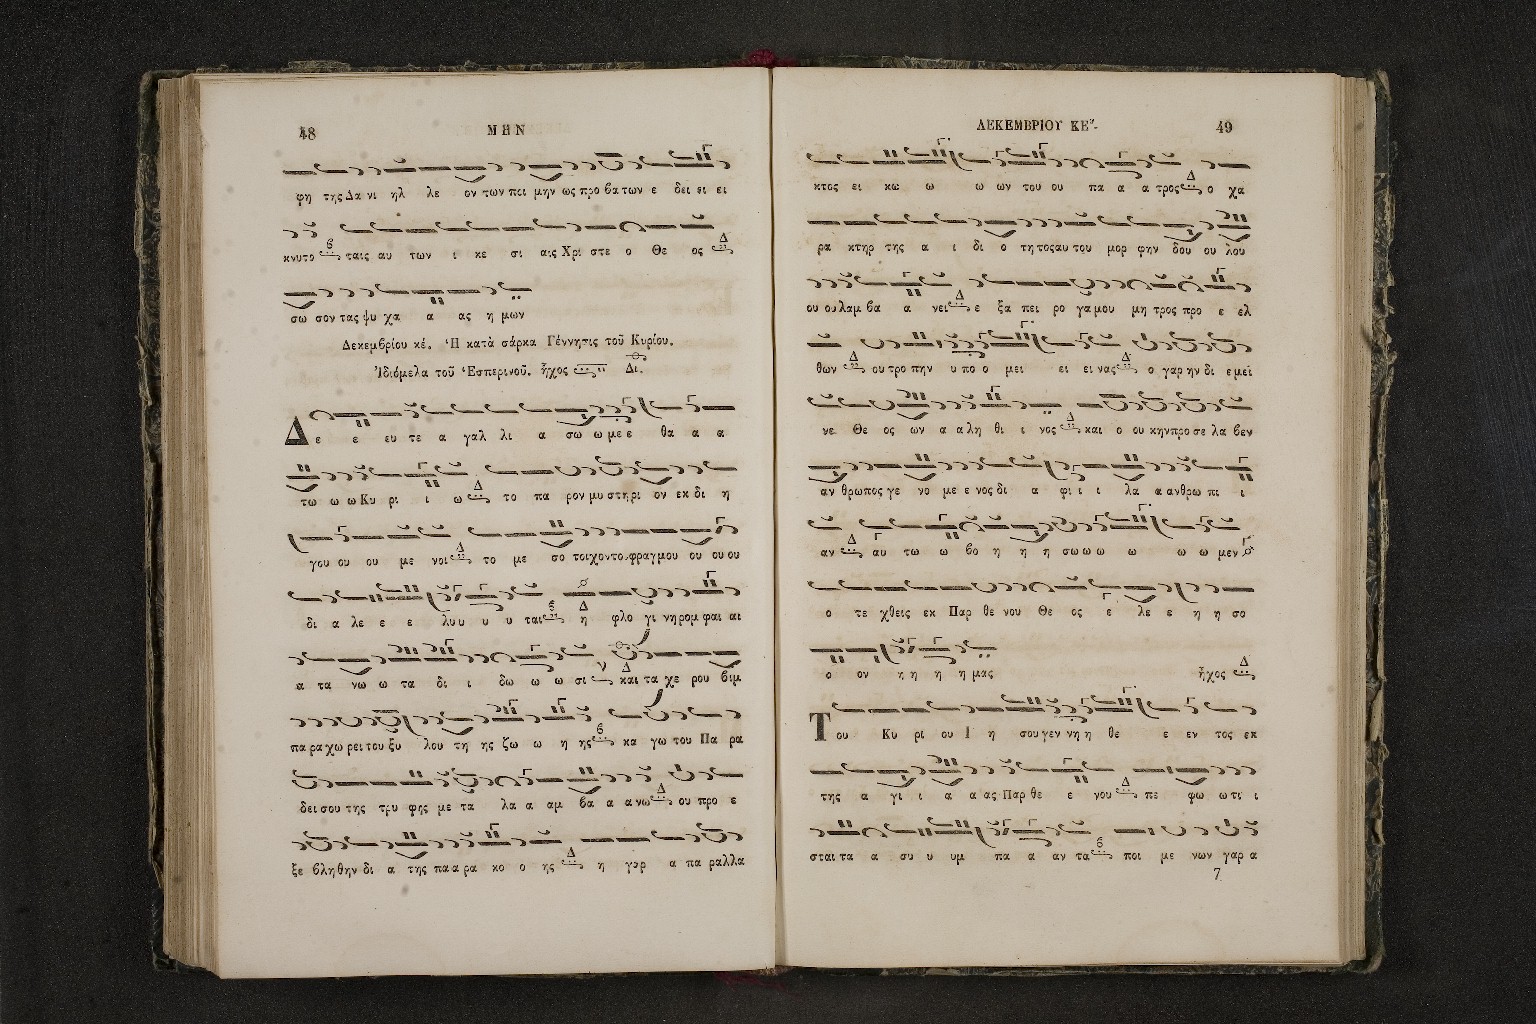 48
ΜΗΝ
φη της Δα νι ηλ λε ον των ποι μην ως προ βα των ε δει ει ει
κνυτο ταις αυ των ι κε σι αις Χρι στε ο Θε ος
σω σον τας ψυ χα α ας η μων
Δεκεμβρίου κέ. Ἡ κατὰ σάρκα Γέννησις τοῦ Κυρίου.
Ἰδιόμελα τοῦ Ἑσπερινοῦ. ἦχος Δι.
Δ ε ε ευ τε α γαλ λι α σω ω με ε θα α α
τω ω ω Κυ ρι ι ω το πα ρον μυ στη ρι ον εκ δι η
γου ου ου με νοι το με σο τοιχον του φραγμου ου ου ου
δι α λε ε ε λυ υ υ υ ται η φλο γι νη ρομ φαι αι
α τα νω ω τα δι ι δω ω ω σι και τα χε ρου βιμ
πα ρα χω ρει του ξυ λου τη ης ζω ω η ης κα γω του Πα ρα
δει σου της τρυ φης με τα λα α αμ βα α α νω ου προ ε
ξε βλη θην δι α της πα α ρα κο ο ης η γαρ α πα ραλλα
ΔΕΚΕΜΒΡΙΟΥ ΚΕ'.
49
κτος ει κω ω ω ων του ου πα α α τρος ο χα
ρα κτηρ της α ι δι ο τη τος αυ του μορ φην δου ου λου
ου ου λαμ βα α νει ε ξα πει ρο γα μου μη τρος προ ε ελ
θων ου τρο πην υ πο ο μει ει ει νας ο γαρ ην δι ε μει
νε Θε ος ων α α λη θι ι νος και ο ου κην προ σε λα βεν
αν θρωπος γε νο με ε νος δι α φι ι ι λα α ανθρω πι ι
αν αυ τω ω βο η η η σω ω ω ω ω ω μεν
ο τε χθεις εκ Παρ θε νου Θε ος ε λε ε η η σο
ο ον η η η η μας ἦχος
Τ ου Κυ ρι ου Ι η σου γεν νη η θε ε εν τος εκ
της α γι ι α α ας Παρ θε ε νου πε φω ω τι ι
σται τα α συ υ υμ πα α αν τα ποι με νων γαρ α
7